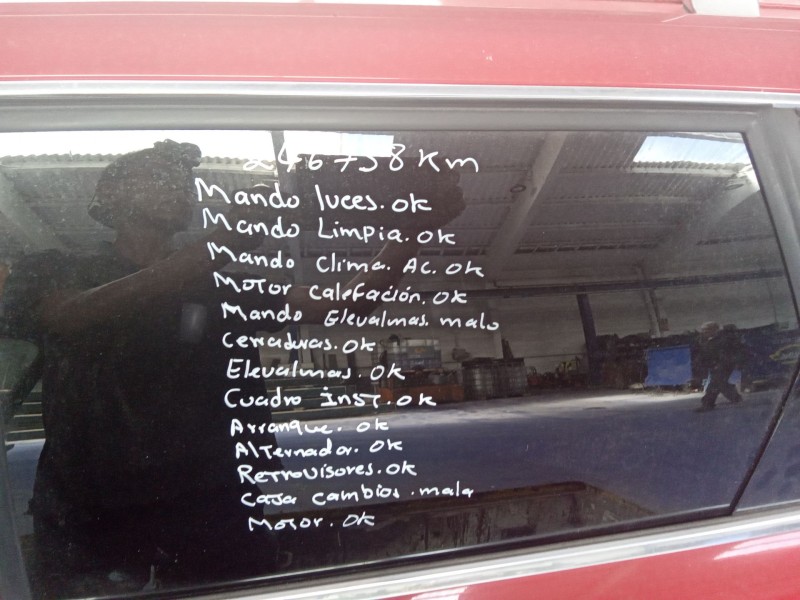 246758 Km
Mando luces. ok
Mando Limpia. ok
Mando Clima. AC. ok
Motor calefación. ok
Mando Elevalmas. malo
Cerraduras. ok
Elevalmas. ok
Cuadro inst. ok
Arranque. ok
Alternador. ok
Retrovisores. ok
Caja cambios. mala
Motor. ok